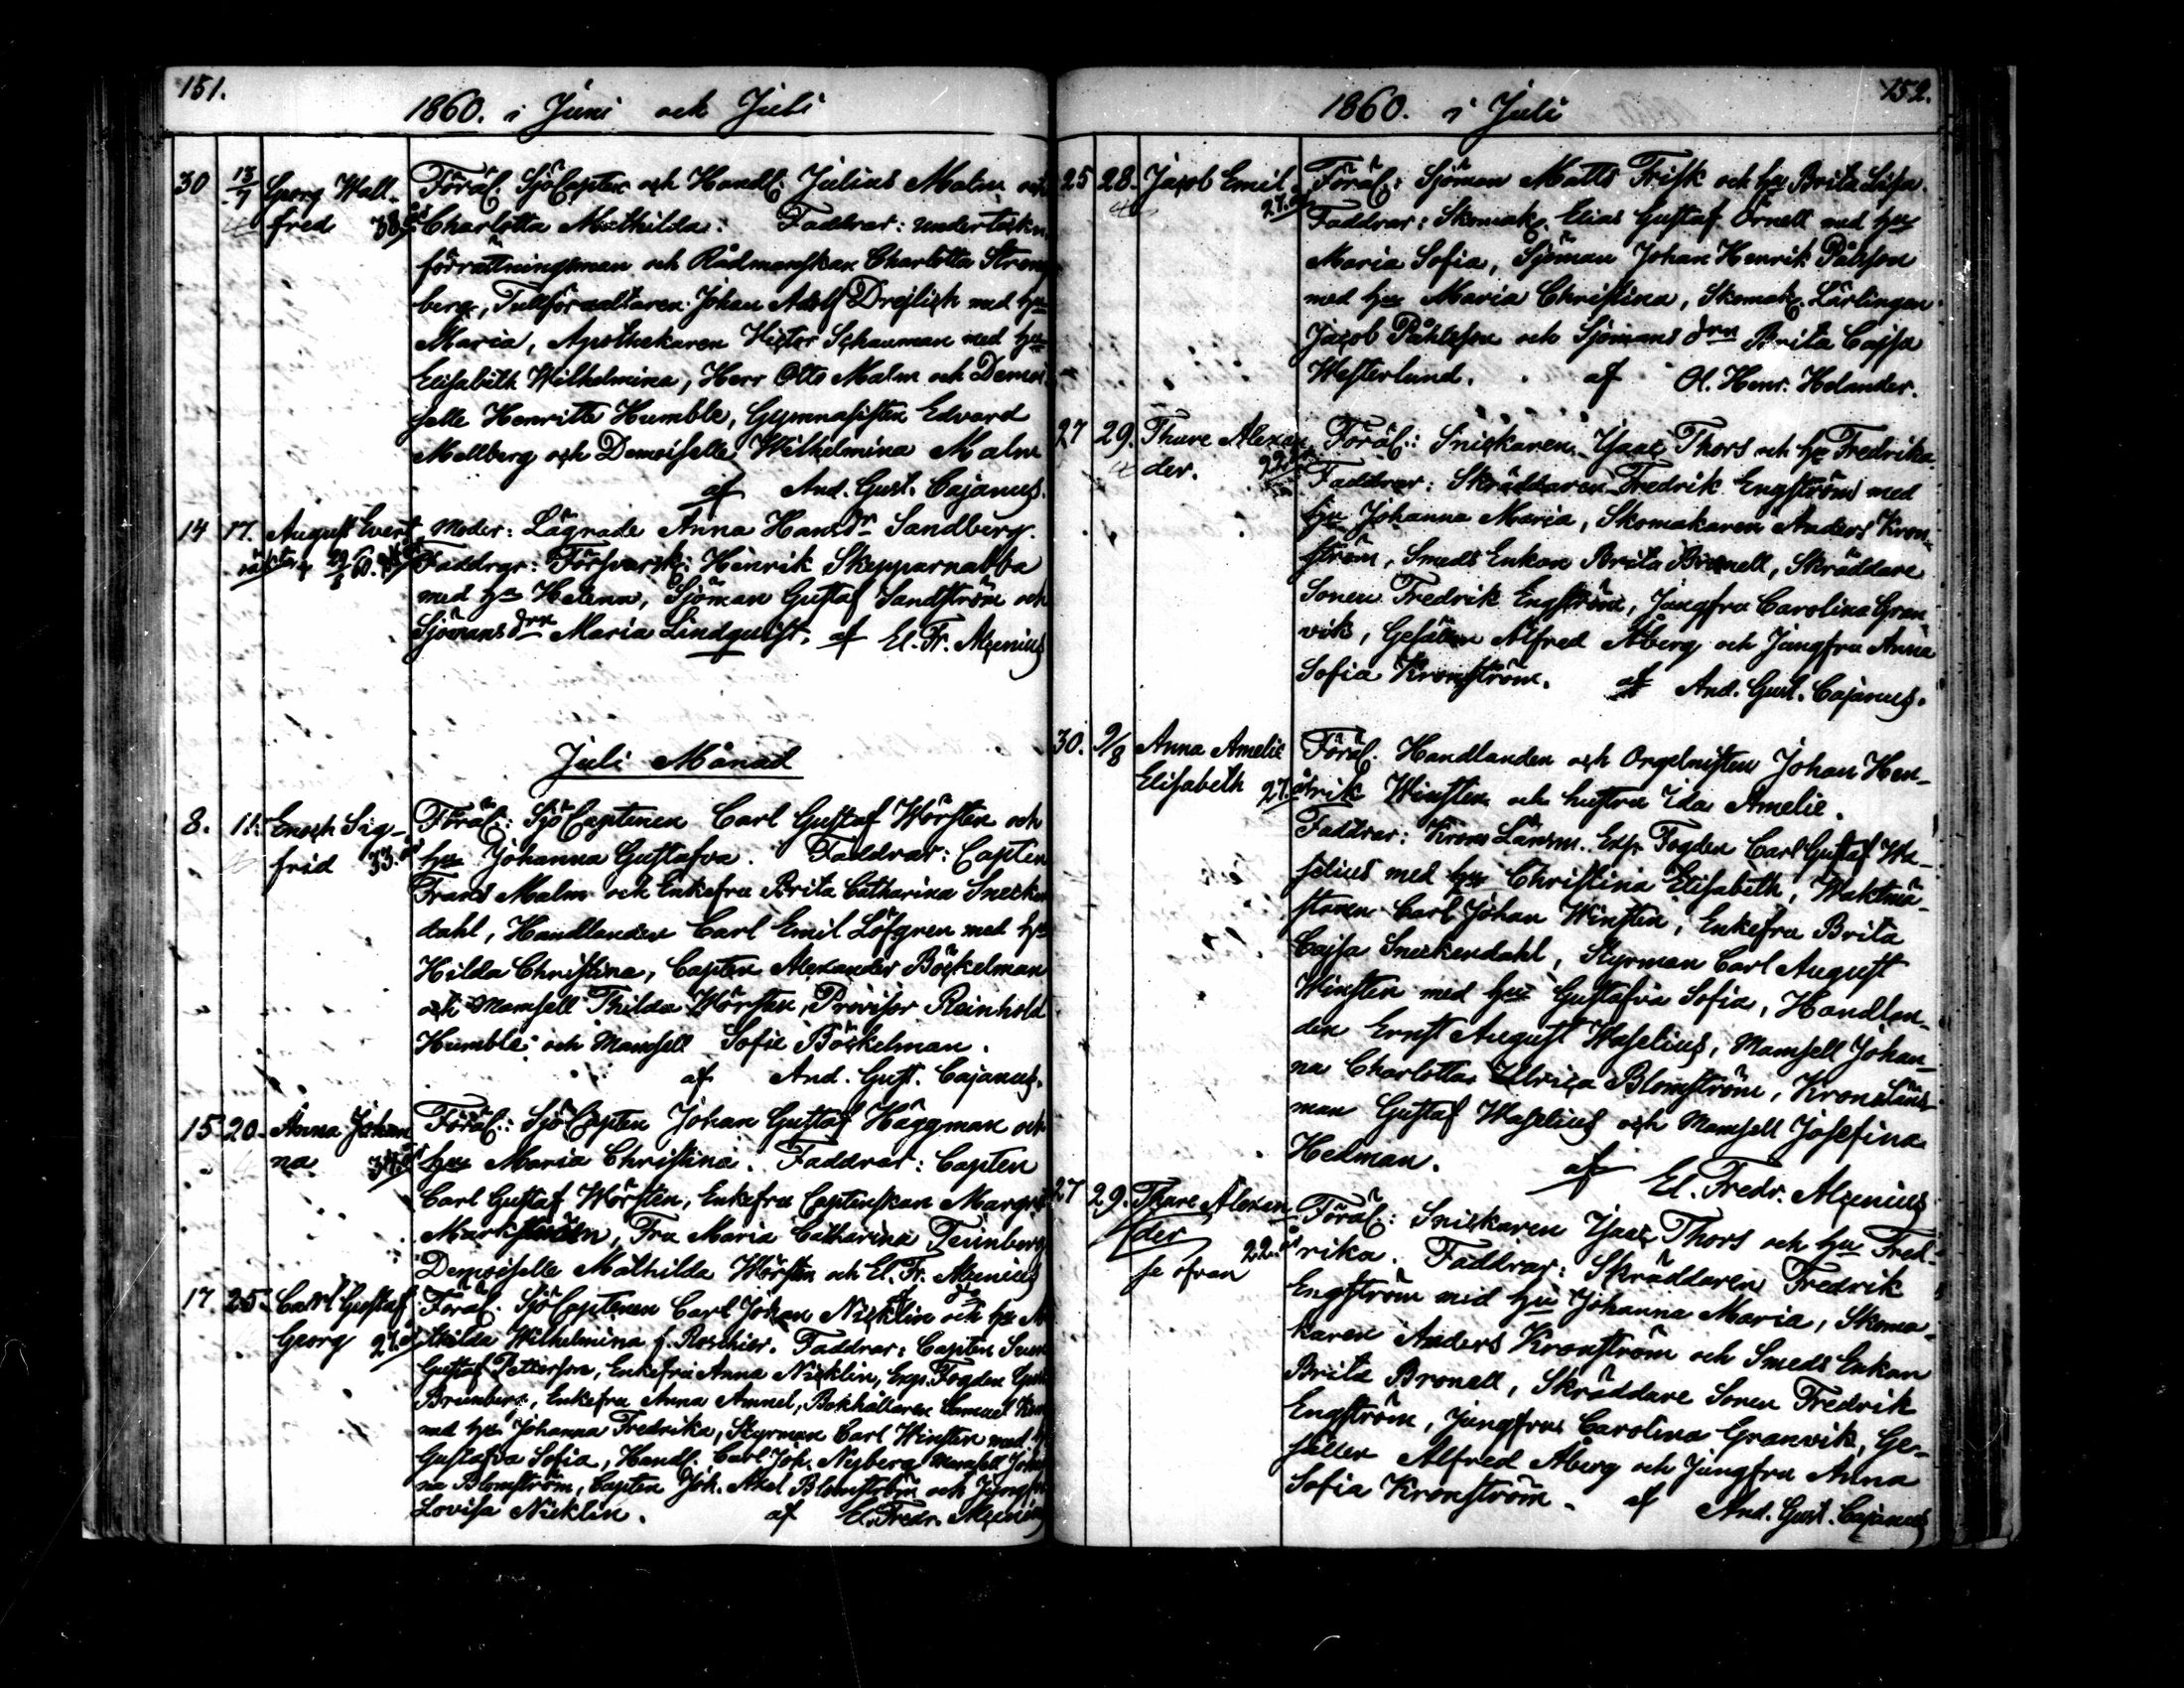 151.
1860. i Juni och Juli
30 13/7 Georg Wall- Föräl. SjöCapten och Handl. Julius Malm och
fred 38 år Charlotta Mathilda. Faddrar: undertäckn.
förrättningsman och Rådmanskan Charlotta Strem
berg, Tullförvaltaren Johan Adolf Drejlick med hu
Maria, Apothekaren Victor Schauman med hu
Elisabeth Wilhelmina, Herr Otto Malm och Demoi
selle Henritte Humble, Gymnasisten Edvard
Mellberg och Demoiselle Wilhelmina Malm
af And. Gust. Cajanus.
14 17. August Evert Moder: Lägrade Anna Hansdr Sandberg.
Faddrar: Försvarsk: Henrik Skepparnabba
med hu Helena, Sjöman Gustaf Sandström och
Sjömansdrn Maria Lindquist. af El. Fr. Alcenius
Juli Månad
8. 11. Enoch Sig- Föräl.: SjöCaptenen Carl Gustaf Wörsten och
frid 33. år hu Johanna Gustafva. Faddrar: Capten
Frans Malm och Enkefru Brita Catharina Snecken
dahl, Handlanden Carl Emil Löfgren med hu
Hilda Christina, Capten Alexander Böckelman
och Mamsell Thilda Wörsten, Provisor Reinhold
Humble och Mamsell Sofie Böckelman.
af And. Gust. Cajanus.
15 20. Anna Johan Föräl.: SjöCapten Johan Gustaf Häggman och
na 34 år hu Maria Christina. Faddrar: Capten
Carl Gustaf Wörsten, Enkefru Captenskan Margret
Fru Maria Catharina
Demoiselle Mathilda Wörsten och El. Fr. Alcenius
17. 25. Carl Gustaf Föräl. SjöCaptenen Carl Johan Nicklin och hu
Georg 27. thilda Wilhelmina f. Roschier. Faddrar: Capten Sven
Gustaf Pettersson, Enkefru Anna Nicklin, Exp. Fogden
Brunberg, Enkefru Anna Ammel, Bokhållaren Samuel
med hu Johanna Fredrika, Styrman Carl Winsten med
Gustafva Sofia, Handl. Carl Joh. Nyberg Mamsell Johan
na Blomström, Capten Joh. Axel Blomström och Jungfr
Lovisa Nicklin. af El. Fredr. Alcenius
152.
1860. i Juli
25 28. Jacob Emil Föräl: Sjöman Matts Frisk och hu Brita Lisa.
27. år Faddrar: Skomak. Elias Gustaf Örnell med hu
Maria Sofia, Sjöman Johan Henrik Påhlson
med hu Maria Christina, Skomak. Lärlingen
Jacob Påhlsson och Sjömans drn Brita Cajsa
Westerlund. af Ol. Henr. Helander.
27 29. Thure Alexan Föräl.: Snickaren Isaac Thors och hu Fredrika.
der. 22 Faddrar: Skräddaren Fredrik Engström med
hu Johanna Maria, Skomakaren Anders Kron-
ström, Smeds Enkan Brita Bronell, Skräddare
Sonen Fredrik Engström, Jungfru Carolina Gran-
vik, Gesällen Alfred Åberg och Jungfru Anna
Sofia Kronström. af And. Gust. Cajanus.
30. 9/8 Anna Amelie Föräl. Handlanden och Orgelnisten Johan Hen-
Elisabeth 27. år rik Winsten och hustru Ida Amelie.
Faddrar: Krono Länsm. Exp. Fogden Carl Gustaf Wa-
selius med hu Christina Elisabeth, Waktmä-
staren Carl Johan Winsten, Enkefru Brita
Cajsa Sneckendahl, Styrman Carl August
Winsten med hu Gustafva Sofia, Handlan-
den Ernst August Waselius, Mamsell Johan-
na Charlotta Ulrica Blomström, Krono Läns-
man Gustaf Waselius och Mamsell Josefina
Hedman. af El. Fredr. Alcenius
27 29. Thure Alexan Föräl: Snickaren Isaac Thors och hu Fred-
der 22. år rika. Faddrar: Skräddaren Fredrik
se ofvan Engström med hu Johanna Maria, Skoma-
karen Anders Kronström och Smeds Enkan
Brita Bronell, Skräddare Sonen Fredrik
Engström, Jungfru Carolina Granvik, Ge-
sällen Alfred Åberg och Jungfru Anna
Sofia Kronström. af And. Gust. Cajanus